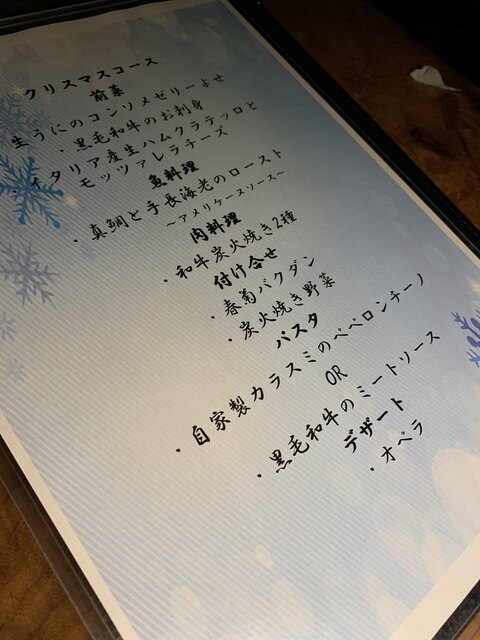 クリスマスコース
前菜
生うにのコンソメゼリーよせ
・黒毛和牛のお刺身
イタリア産生ハムクラテッロと
モッツァレラチーズ
魚料理
・真鯛と手長海老のロースト
～アメリケーヌソース～
肉料理
・和牛炭火焼き2種
付け合せ
・春菊バクダン
・炭火焼き野菜
パスタ
・自家製カラスミのペペロンチーノ
OR
・黒毛和牛のミートソース
デザート
・オペラ